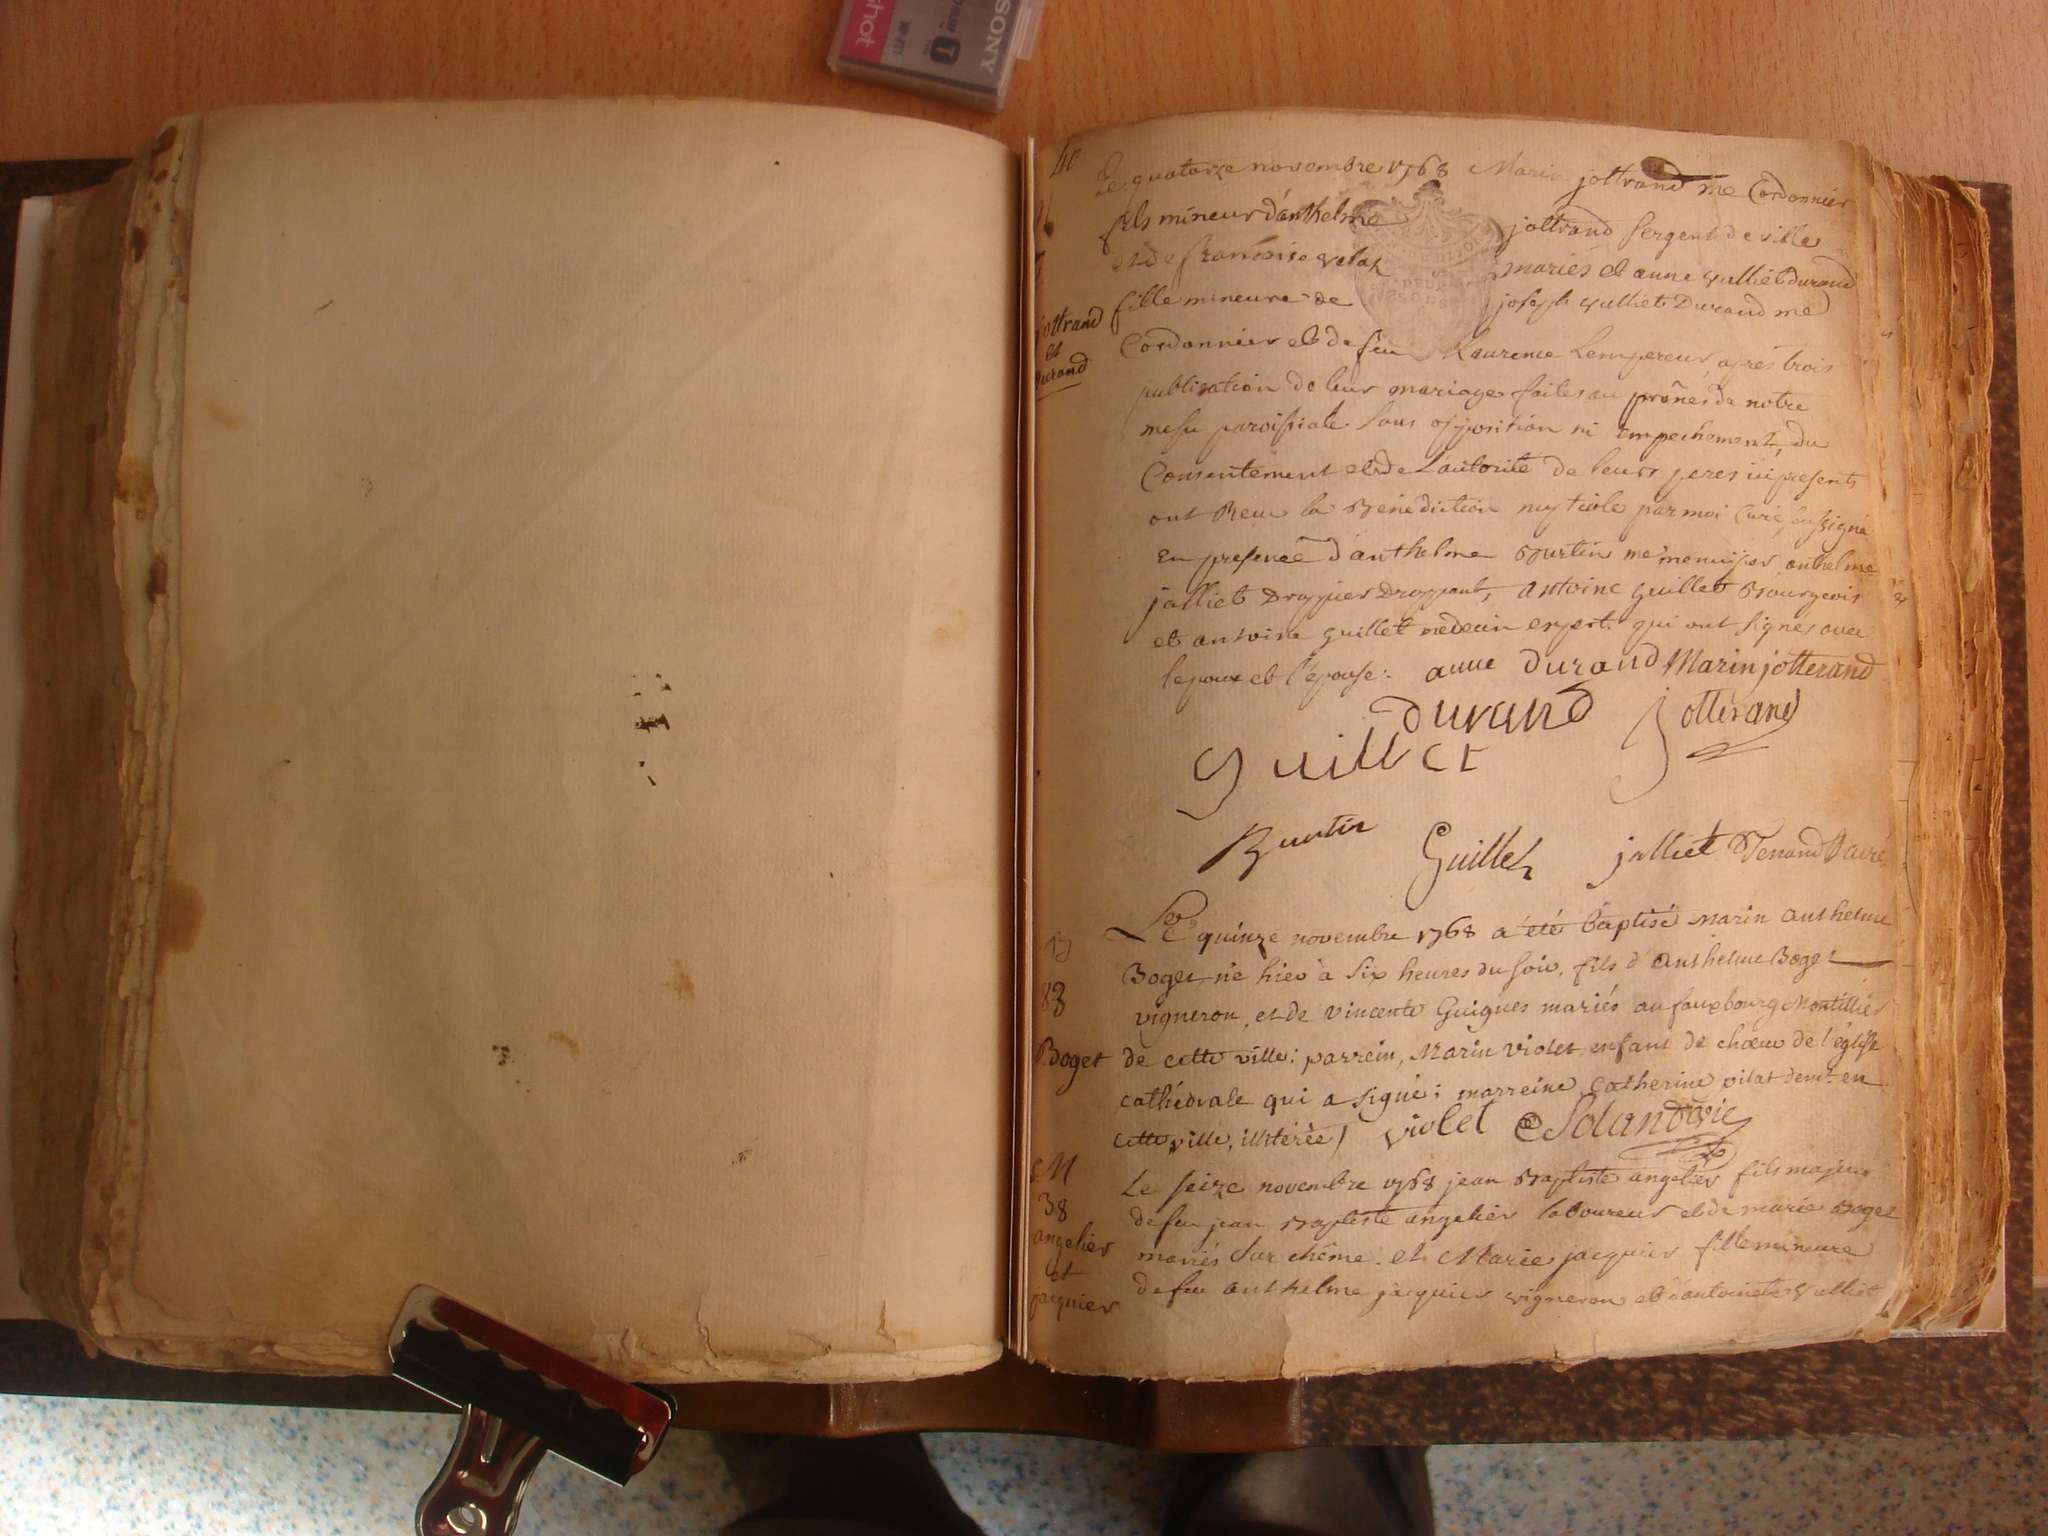 SONY
40
Le quatorze novembre 1768 Marin jottrand me Cordonnier
fils mineur d'anthelme jottrand sergent de ville
et de francoise velat mariés et anne vulliet durand
fille mineure de joseph vulliet Durand me
Cordonnier et de feu Laurence Lempereur, apres trois
publication de leur mariage faites au prônes de notre
messe paroissiale sans opposition ni empechement, du
Consentement et de L'autorité de leurs peres ici presents
ont Recu la Bénédiction nuptiale par moi Curé soussigné
En presence d'anthelme Burtin me menuisier, anthelme
jolliet Drappier Drappant, antoine guillet Bourgeois
et antoine guillet médecin expert. qui ont signés avec
l'epoux et l'epouse: anne durand Marin jotterand
durand jotterand
guillet
Burtin Guillet jolliet
jottrand
et
durand
Le quinze novembre 1768 a été baptisé Marin Anthelme
Boget né hier à six heures du soir, fils d'Anthelme Boget
vigneron, et de vincente Guigues mariés au fauxbourg Montillier
de cette ville; parrein, Marin violet enfant de chœur de l'église
cathédrale qui a signé; marreine, Catherine vilat demt. en
cette ville, illitérée / violet
B
83
Boget
Le seize novembre 1768 jean Baptiste angelier fils majeur
de feu jean Baptiste angelier laboureur et de marie Boget
mariés sur chême. et Marie jacquier fille mineure
de feu anthelme jacquier vigneron et d'antoinete vulliet
M
38
angelier
et
jacquier